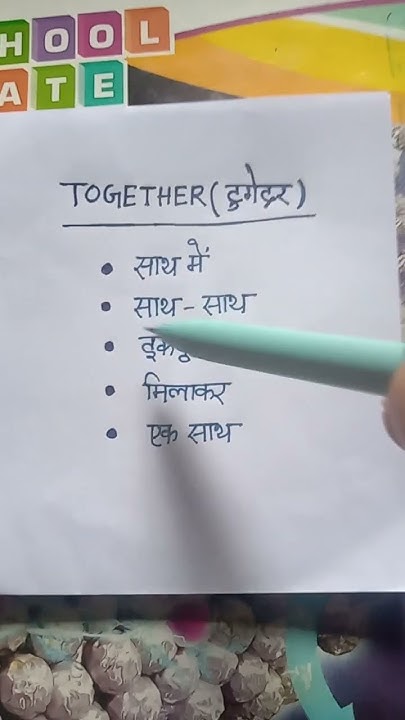 HOOL
ATE
TOGETHER (टुगेदर)
• साथ में
• साथ - साथ
•
• मिलाकर
• एक साथ